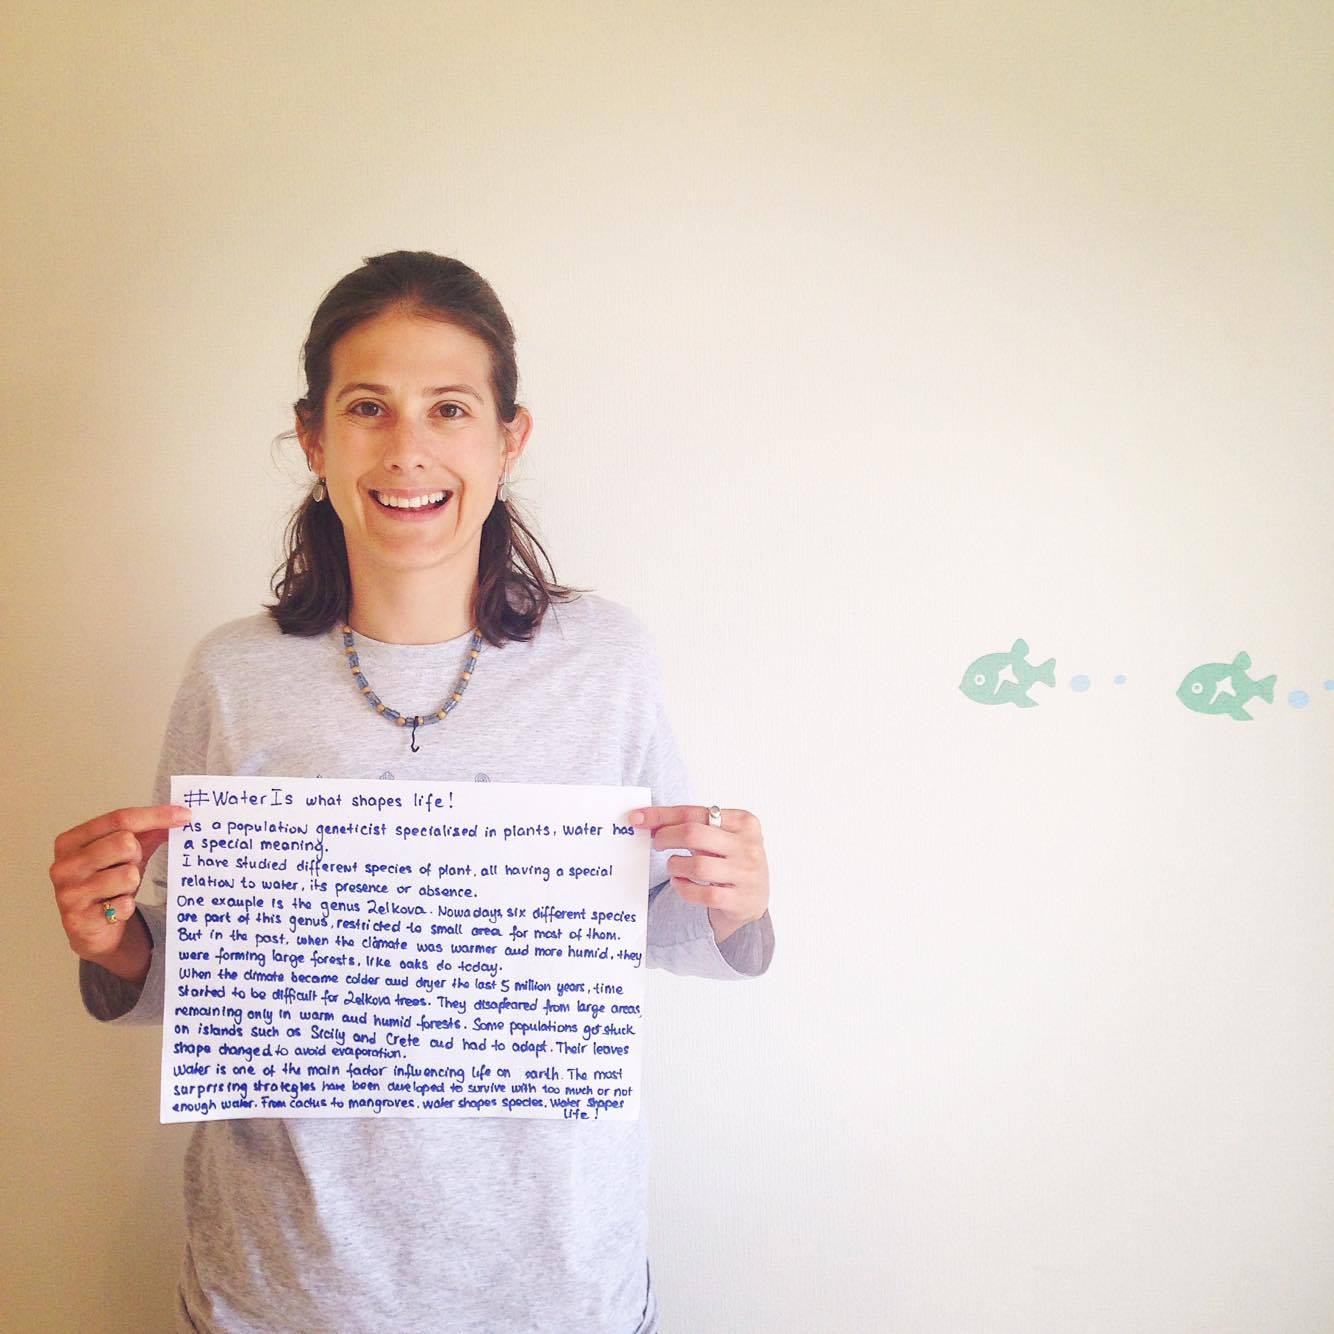 #WaterIs what shapes life!
As a population geneticist specialised in plants, water has
a special meaning.
I have studied different species of plant, all having a special
relation to water, its presence or absence.
One example is the genus Zelkova. Nowadays, six different species
are part of this genus, restricted to small area for most of them.
But in the past, when the climate was warmer and more humid, they
were forming large forests, like oaks do today.
When the climate became colder and dryer the last 5 million years, time
started to be difficult for Zelkova trees. They disapeared from large areas,
remaining only in warm and humid forests. Some populations got stuck
on islands such as Sicily and Crete and had to adapt. Their leaves
shape changed to avoid evaporation.
Water is one of the main factor influencing life on earth. The most
surprising strategies have been developed to survive with too much or not
enough water. From cactus to mangroves, water shapes species, water shapes
life!